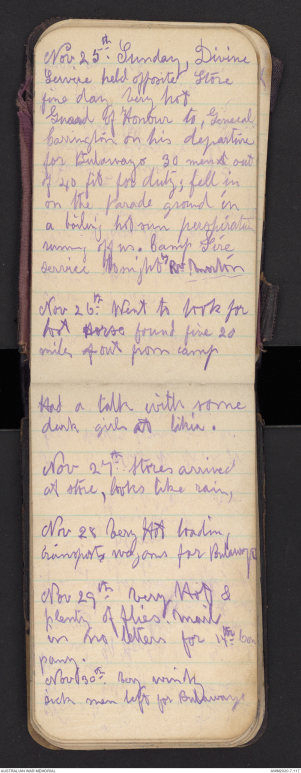 Nov 25th Sunday, Divine
Service held opposite Store
fine day very hot
Guard of Honour to, General
Carington on his departure
for Bulawayo 30 men out
of 40 fit for duty, fell in
on the Parade ground in
a boiling hot sun perspiration
running off us. Camp Fire
service tonight
Nov 26th Went to look for
lost horse found five 20
miles out from camp
Had a talk with some
dark girls
Nov 27th Stores arrived
at store, looks like rain,
Nov 28 Very Hot loading
transports wagons for Bulawayo
Nov 29th Very Hot &
plenty of flies. mail
in no letters for 4th Com
pany.
Nov 30th Very windy
sick men left for Bulawayo
AUSTRALIAN WAR MEMORIAL